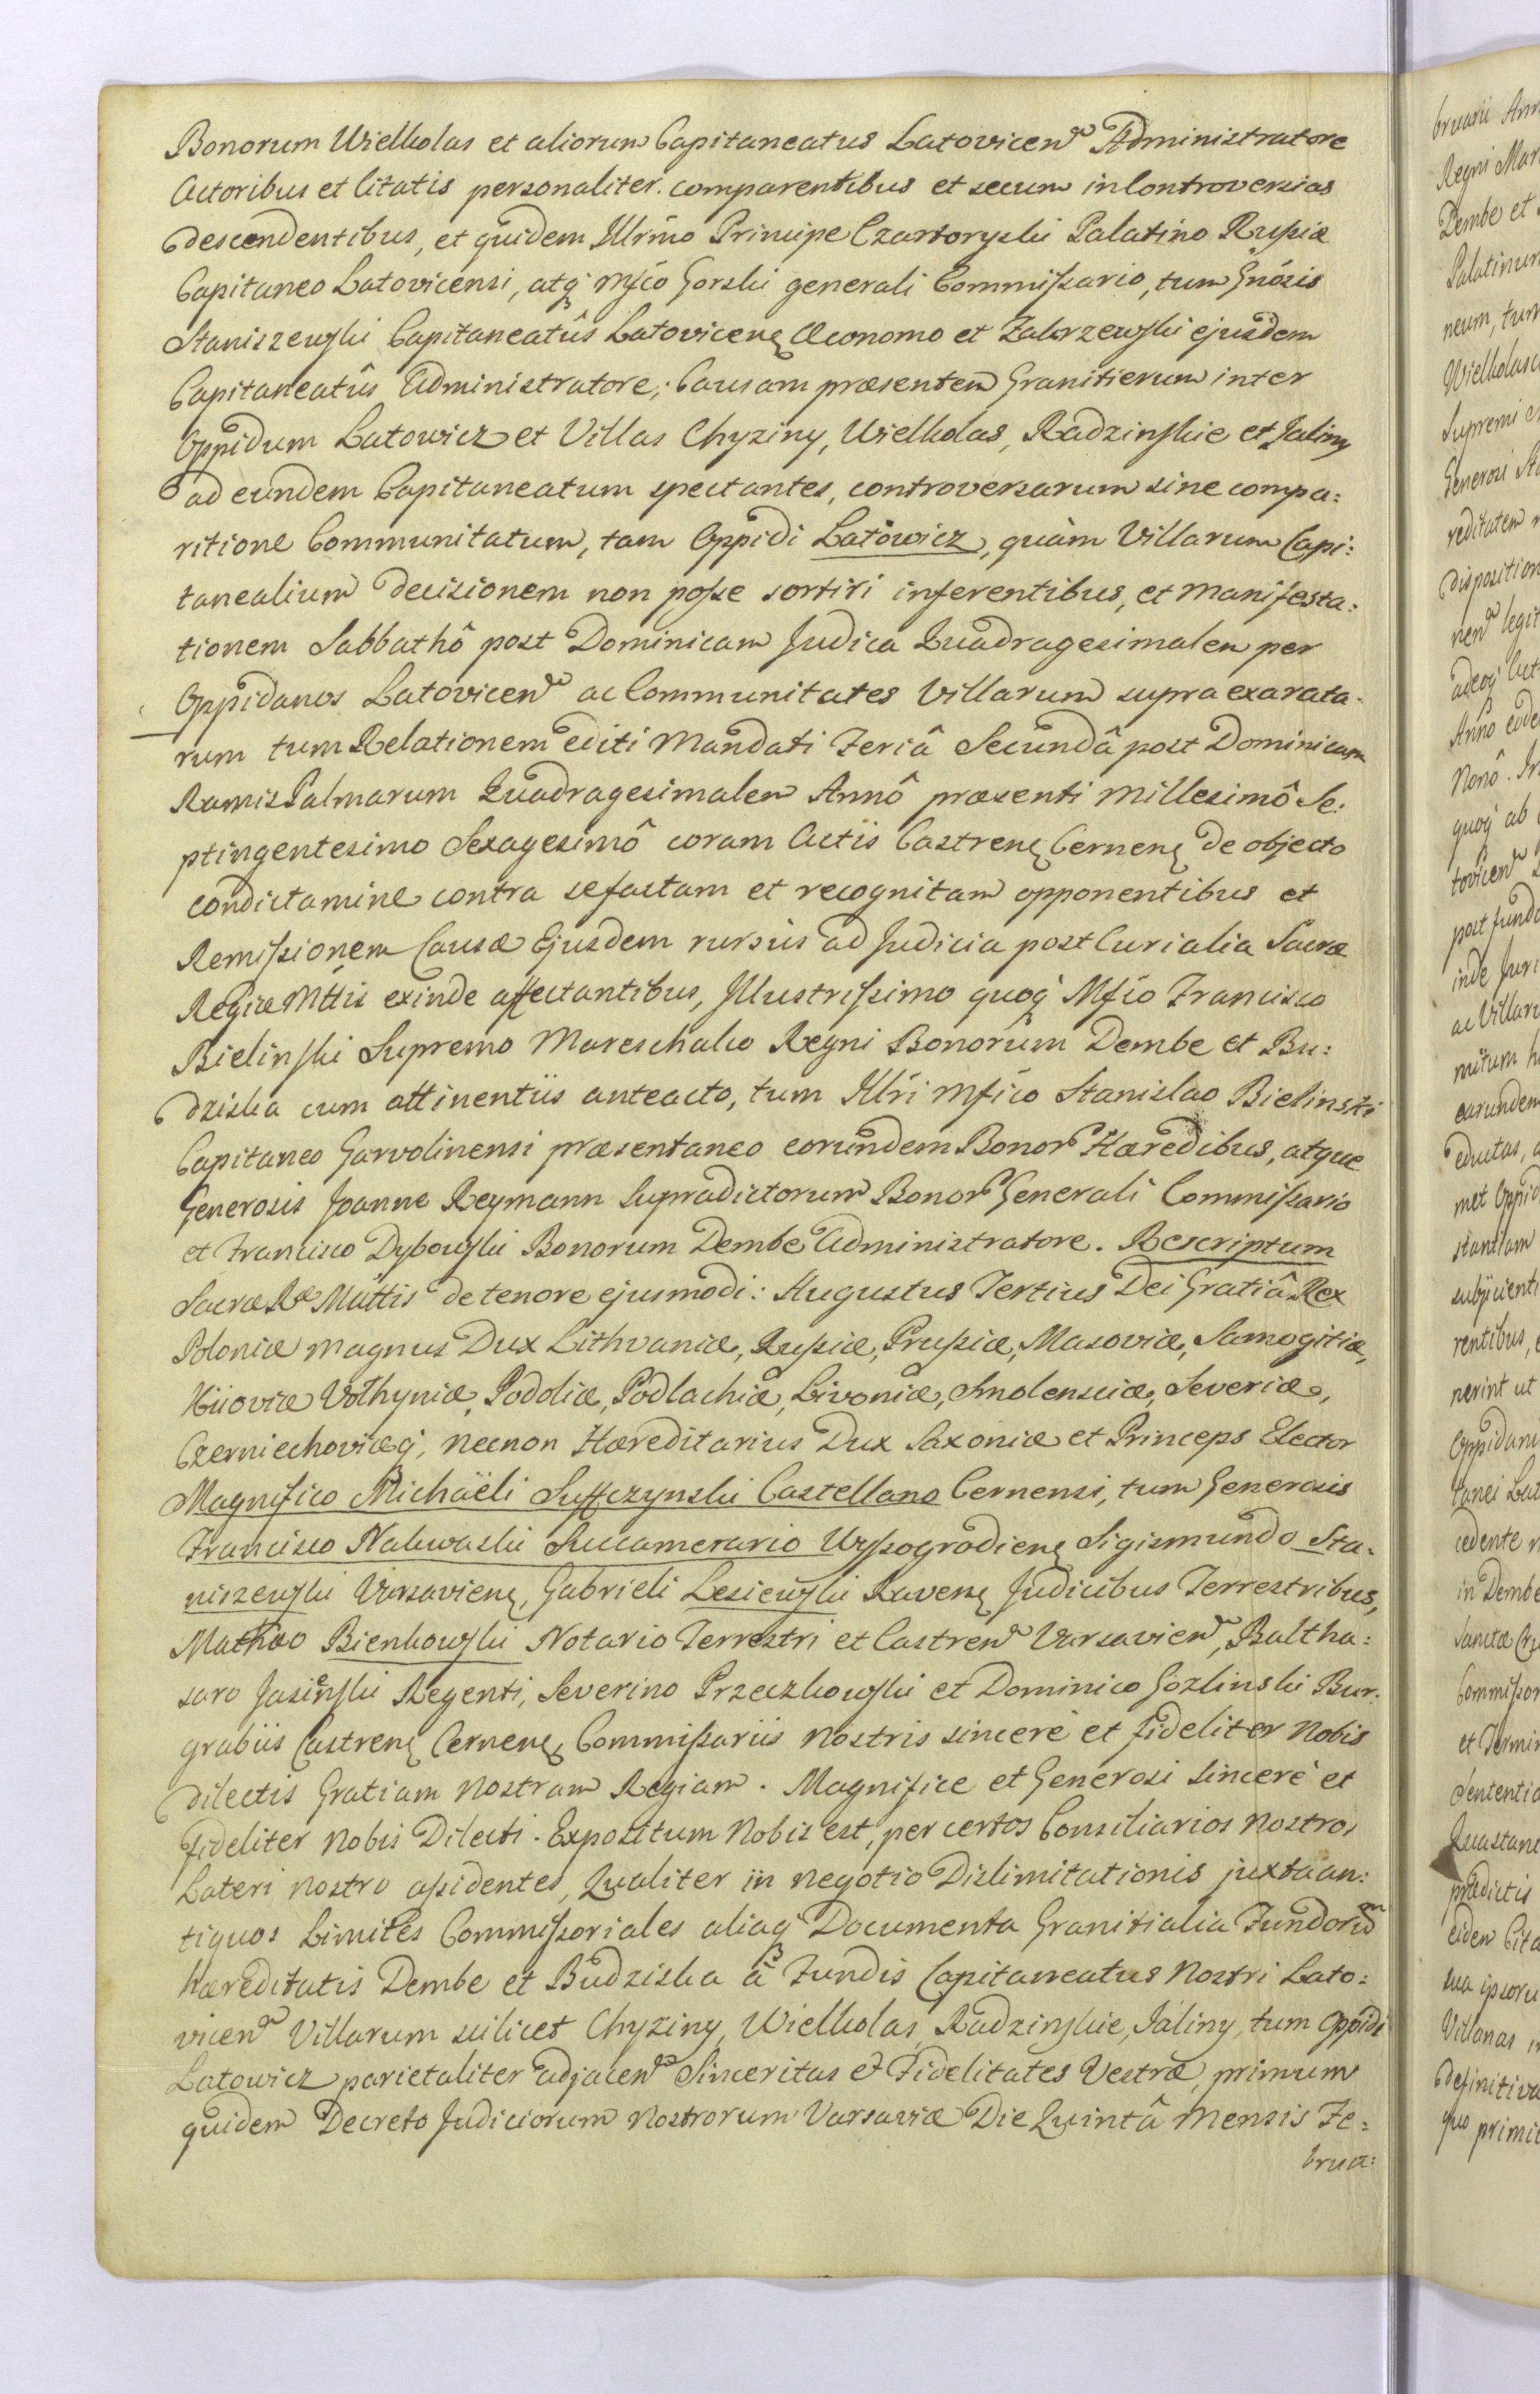 Bonorum Wielkolas et aliorum Capitaneatus Latovicen Administratore
Actoribus et Citatis personaliter comparentibus et secum in Controversias
descendentibus, et quidem Illrmo Principe Czartoryski Palatino Russiæ
Capitaneo Latovicensi, atq Mfco Gorski generali Commissario, tum Gnosis
Staniszewski Capitaneatûs Latovicen Œconomo et Zakrzewski ejusdem
Capitaneatûs Administratore, Causam præsentem Granitierum inter
Oppidum Latowicz et Villas Chyziny, Wielkolas, Radzinskie et Jaliny
ad eundem Capitaneatum spectantes, controversarum sine compa:
ritione Communitatum, tam Oppidi Latowicz, quàm Villarum Capi:
tanealium decisionem non posse sortiri inferentibus, et Manifesta:
tionem Sabbathô post Dominicam Judica Quadragesimalem per
Oppidanos Latovicen ac Communitates Villarum supra exarata-
rum tum Relationem editi Mandati Feriâ Secundâ post Dominicam
Ramis Palmarum Quadragesimalem Annô præsenti Millesimô Se:
ptingentesimo Sexagesimô coram Actis Castren Cernen de objecto
condictamine contra se factam et recognitam opponentibus et
Remissionem Causæ Ejusdem rursùs ad Judicia post Curialia Sacræ
Regiæ Mttis exinde affectantibus, Illustrissimo quoq Mfco Francisco
Bielinski Supremo Mareschalco Regni Bonorum Dembe et Bu:
dziska cum attinentiis anteacto, tum Illri Mfico Stanislao Bielinski
Capitaneo Garvolinensi præsentaneo eorundem Bonor Hæredibus, atque
Generosis Joanne Reymann supradictorum Bonor Generali Commissario
et Francisco Dybowski Bonorum Dembe Administratore. Rescriptum
Sacræ Ræ Mattis de tenore ejusmodi: Augustus Tertius Dei Gratiâ Rex
Poloniæ Magnus Dux Lithvaniæ, Russiæ, Prussiæ, Masoviæ, Samogitiæ,
Kijoviæ Volhyniæ, Podoliæ, Podlachiæ, Livoniæ, Smolensciæ, Severiæ,
Czerniechoviæq, necnon Hæreditarius Dux Saxoniæ et Princeps Elector
Magnifico Michaëli Suffczynski Castellano Cernensi, tum Generosis
Francisco Nakwaski Succamerario Wyssogrodien Sigismundo Sta-
niszewski Varsavien, Gabrieli Lesiewski Raven Judicibus Terrestribus,
Mathæo Bienkowski Notario Terrestri et Castren Varsavien, Baltha:
saro Jasienski Regenti, Severino Przeczkowski et Dominico Gozlinski Bur:
grabiis Castren Cernen Commissariis Nostris sincerè et fideliter Nobis
dilectis Gratiam Nostram Regiam. Magnifice et Generosi sincerè et
fideliter Nobis Dilecti. Expositum Nobis est, per certos Consiliarios Nostros
Lateri Nostro assidentes, Qualiter in negotio Dislimitationis juxta an:
tiquos Limites Commissoriales aliaq Documenta Granitialia Fundorum
hæreditatis Dembe et Budziska à Fundis Capitaneatus Nostri Lato:
vicen Villarum scilicet Chyziny, Wielkolas, Radzinskie, Jaliny, tum Oppidi
Latowicz parietaliter adjacen Sinceritas et Fidelitates Vestræ, primum
quidem Decreto Judiciorum Nostrorum Varsaviæ Die Quintâ Mensis Fe:
brua:
bruarii Ann
Regni Mar
Dembe et
Palatinum
neum, tum
Wielkolasc
Supremi
Generosi Sta
reditatem
disposition
nen legit
adeoq Act
Anno eode
Nonô.
quoq ab
tovicen
post fund
inde Juri
ac Villaru
mitum
earundem
eductas,
met Oppid
stantiam
subjicient
rentibus,
nerint ut
Oppidan
tanei Lat
cedente
in Dembe
Sanctæ Cru
Commissor
et Termin
Sententia
Quastane
prædictis
eidem Cita
sua ipsoru
Villanas
definitiva
quo primit